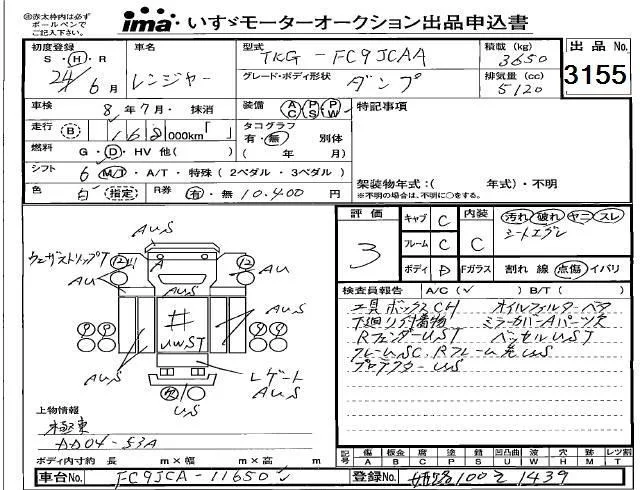 ◎赤太枠内は必ず
ボールペンで
ご記入下さい。
ima いすゞモーターオークション出品申込書
初度登録 S・H・R 24/6月
車名 レンジャー
型式 TKG-FC9JCAA
グレード・ボディ形状 ダンプ
積載(kg) 3650
排気量(cc) 5120
出品No. 3155
車検 8年7月・抹消
装備 AC PS PW
特記事項
走行 B 168,000km「 」
タコグラフ 有・無 別体
( 年 月)
燃料 G・D・HV 他( )
シフト 6 M/T・A/T・特殊(2ペダル・3ペダル)
架装物年式:( 年式)・不明
※不明の場合は、不明に○をする。
色 白 指定 R券 有・無 10,400円
ウェザストリップT
AU,S
A
AU
AU
AU,S
#
UWST
AU,S
AU,S
レゲート
AU,S
欠
US
評価 3
キャブ C
フレーム C
ボディ D
内装 C
汚れ 破れ ヤニ スレ
シートエグレ
Fガラス 割れ 線 点傷 イバリ
検査員報告 A/C(✓) B/T( )
工具ボックスCH オイルフィルターベタ
下廻リ付着物 ミラーカバーAパーツ欠
RフェンダーUST ベッセルUST
フレームSC、Rフレーム先US
プロテクターUS
上物情報
極東
DD04-53A
ボディ内寸約 長 m×幅 m×高 m
記号 傷A 板金B 腐C 塗P 錆S 凹凸曲U 波W 穴H 跡M レツ割T
車台No. FC9JCA-11650
登録No. 姫路100そ1439